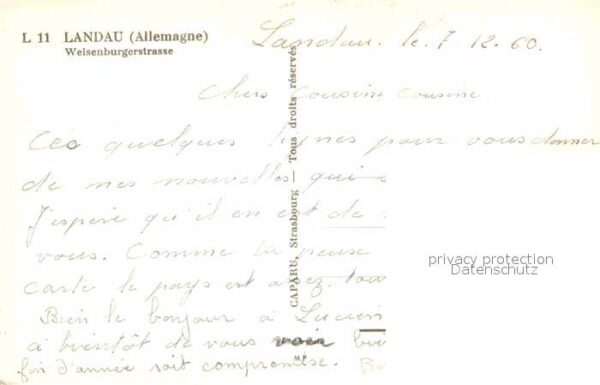 L 11 LANDAU (Allemagne)
Weisenburgerstrasse
Landau. le. 7 12. 60.
Chers Cousins Cousine
Ces quelques lignes pour vous donner
de mes nouvelles qui
J'espère qu'il en est de
vous. Comme tu peux
carte le pays est assez
Bien le bonjour à Lucien
à bientôt de vous voir
fin d'année soit compromise.
CAPARU, Strasbourg — Tous droits réservés
MP
privacy protection
Datenschutz